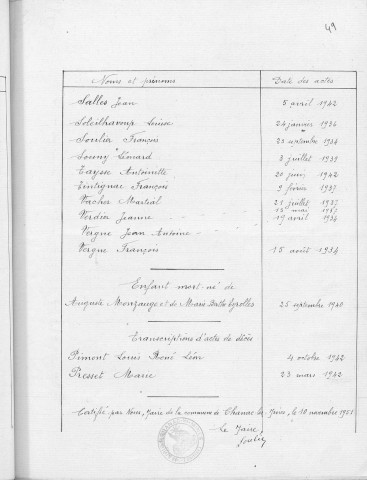 49
Noms et prénoms Date des actes
Salles Jean 5 avril 1942
Soleilhavoup Louise 24 janvier 1936
Soulier François 23 septembre 1934
Souny Léonard 3 juillet 1939
Taysse Antoinette 20 juin 1942
Tintignac François 9 février 1937
Vacher Martial 21 juillet 1937
Verdier Jeanne 19 avril 1934
Vergne Jean Antoine
Vergne François 15 août 1934
Enfant mort-né de
Auguste Monzauge et de Marie Berthe Eyrolles 25 septembre 1940
Transcriptions d'actes de décès
Pimont Louis René Léon 4 octobre 1942
Presset Marie 23 mars 1942
Certifié par Nous, Maire de la commune de Chanac les Mines, le 10 novembre 1951
Le Maire,